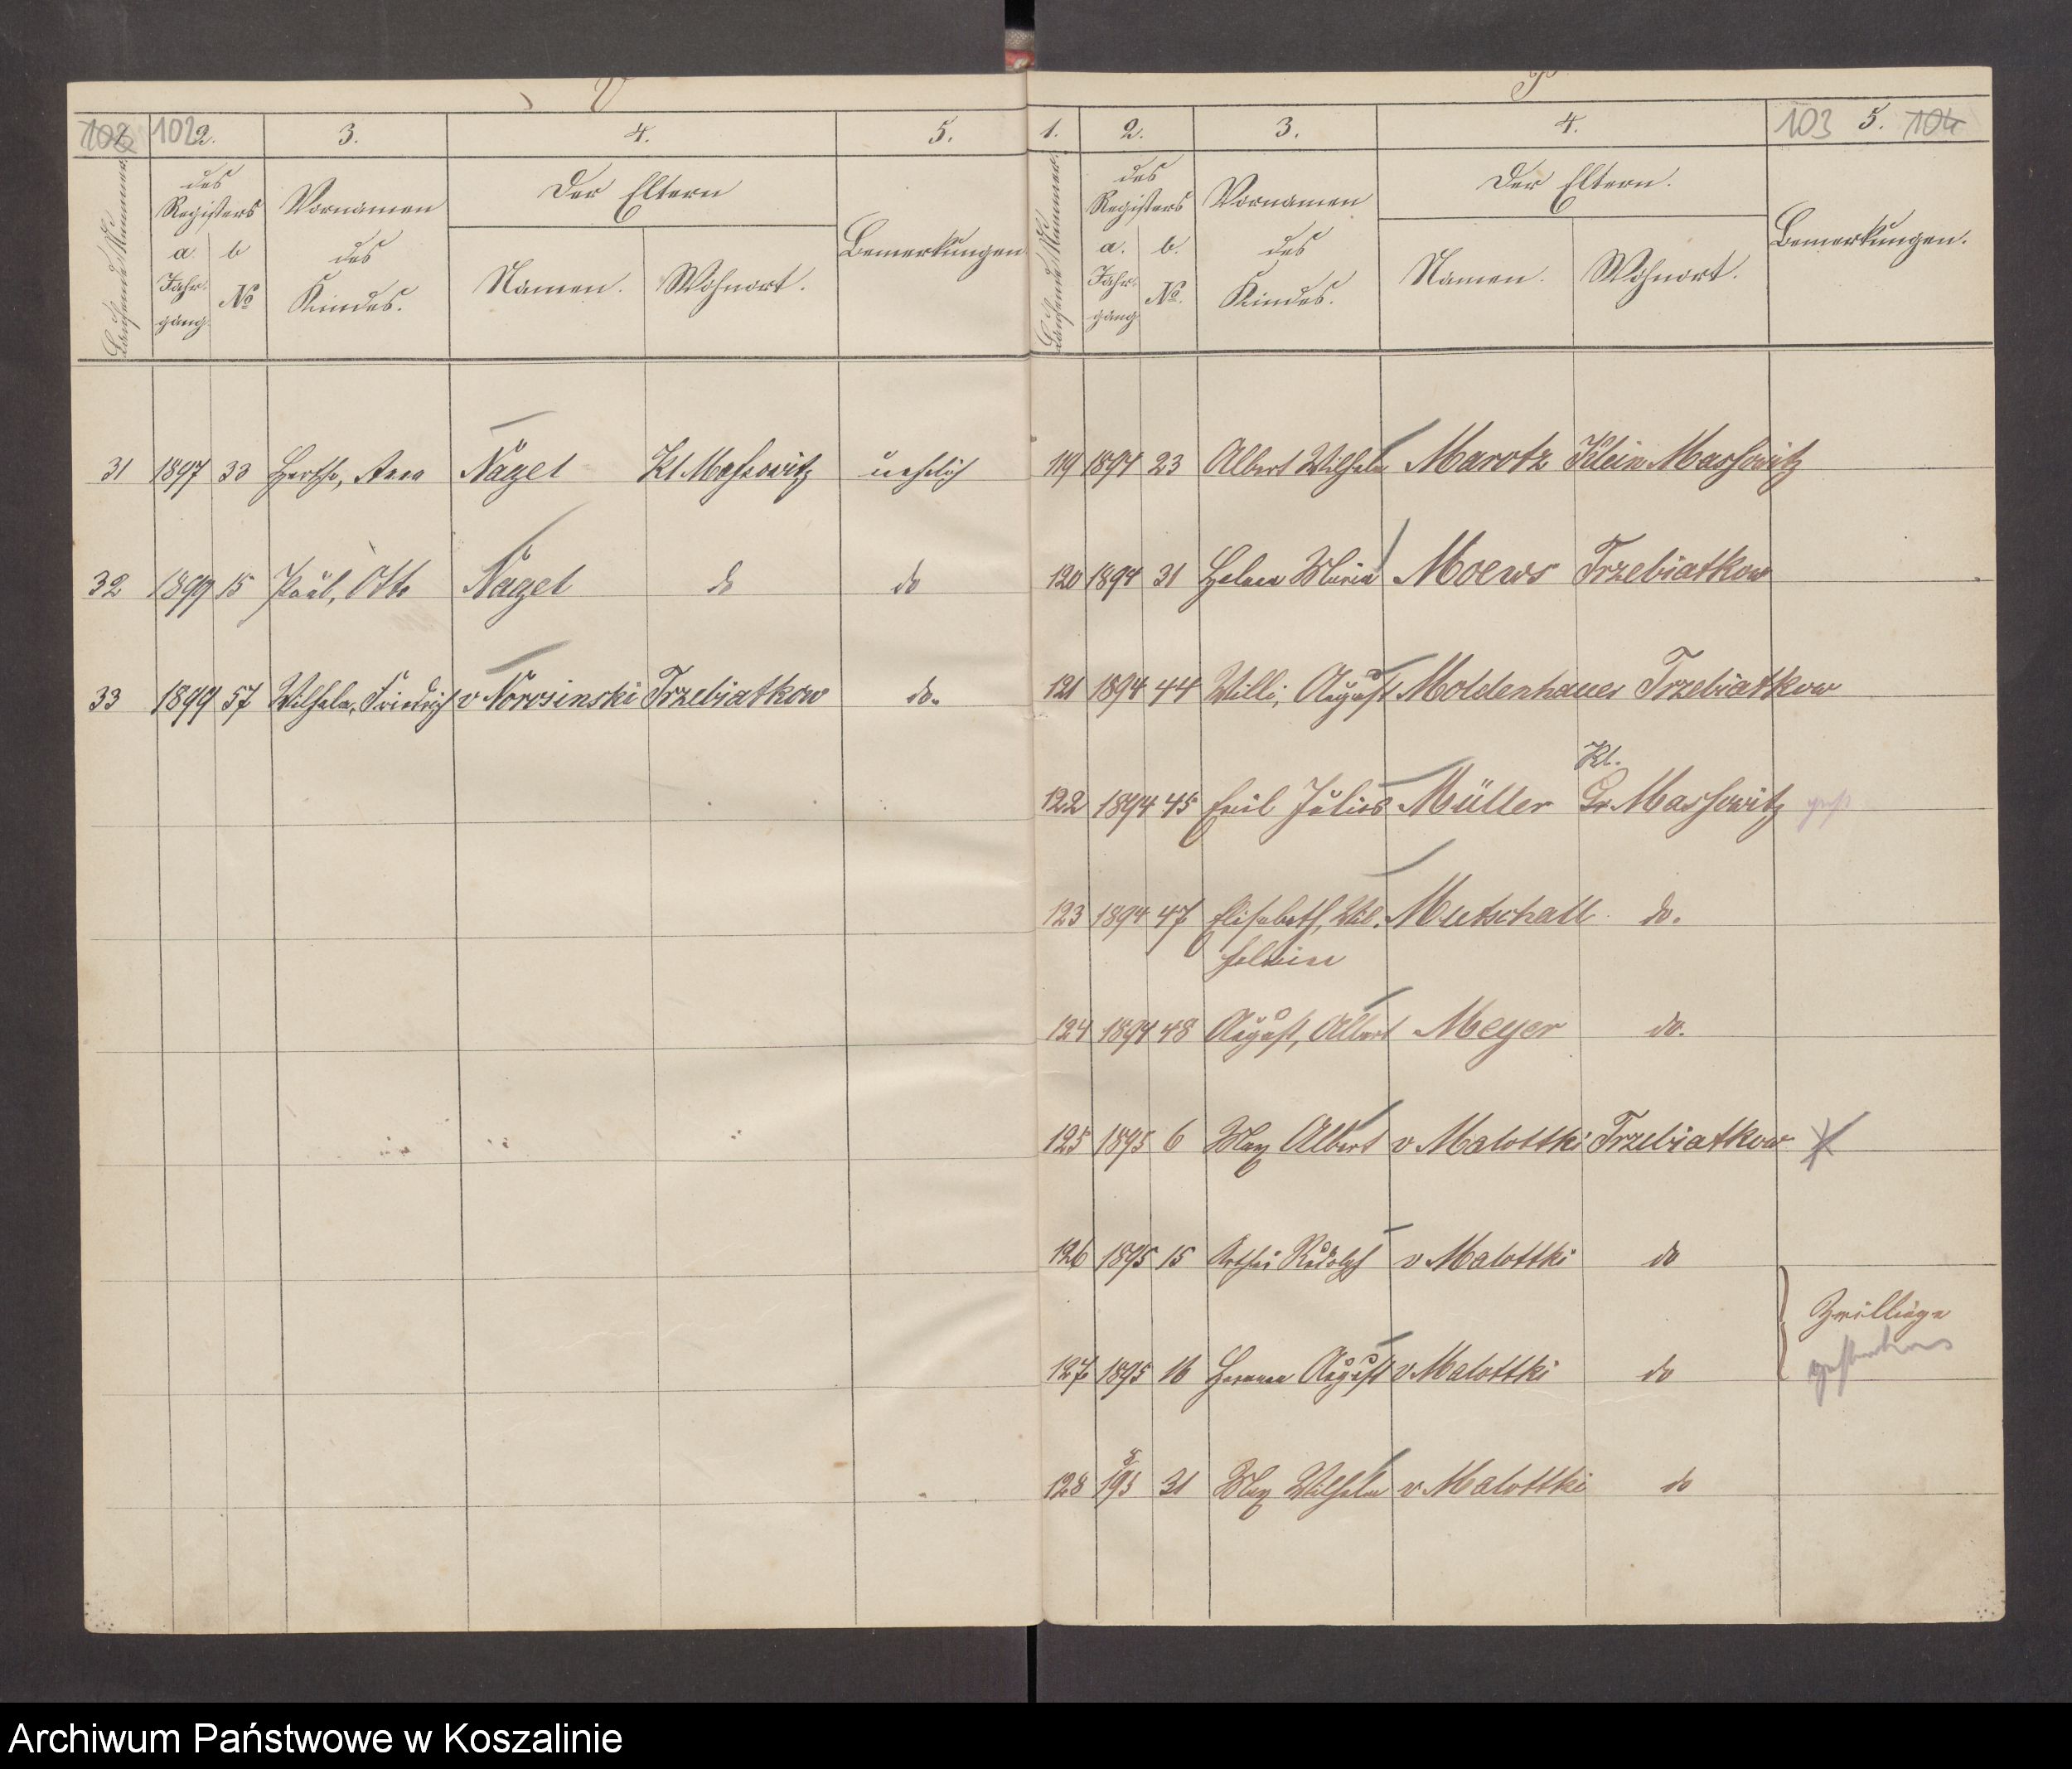 102 102 2. 3. 4. 5.
Laufende Nummer.
des Registers
Vornamen des Kindes.
Der Eltern
Bemerkungen
a b
Jahrgang №
Namen. Wohnort.
31 1897 33 Hertha, Anna Nagel Kl Massowitz unehelich
32 1899 15 Paul, Otto Nagel do do
33 1899 57 Wilhelm, Friedrich v Norosinski Trzebiatkow do.
1. 2. 3. 4. 103 5. 104
Laufende Nummer.
des Registers
Vornamen des Kindes.
Der Eltern.
Bemerkungen.
a. b.
Jahrgang №.
Namen. Wohnort.
119 1894 23 Albert Wilhelm Marotz Klein Massowitz
120 1894 31 Helene Maria Moews Trzebiatkow
121 1894 44 Willi, August Moldenhauer Trzebiatkow
Kl.
122 1894 45 Emil Julius Müller Gr Massowitz gest
123 1894 47 Elisabeth, Wil. Mutschall do.
helmine
124 1894 48 August, Albert Meyer do.
125 1895 6 Max Albert v Malottki Trzebiatkow
126 1895 15 Arthur Rudolph v Malottki do
Zwillinge
127 1895 16 Herman August v Malottki do
gestorben
8
128 195 31 Max Wilhelm v Malottki do
Archiwum Państwowe w Koszalinie